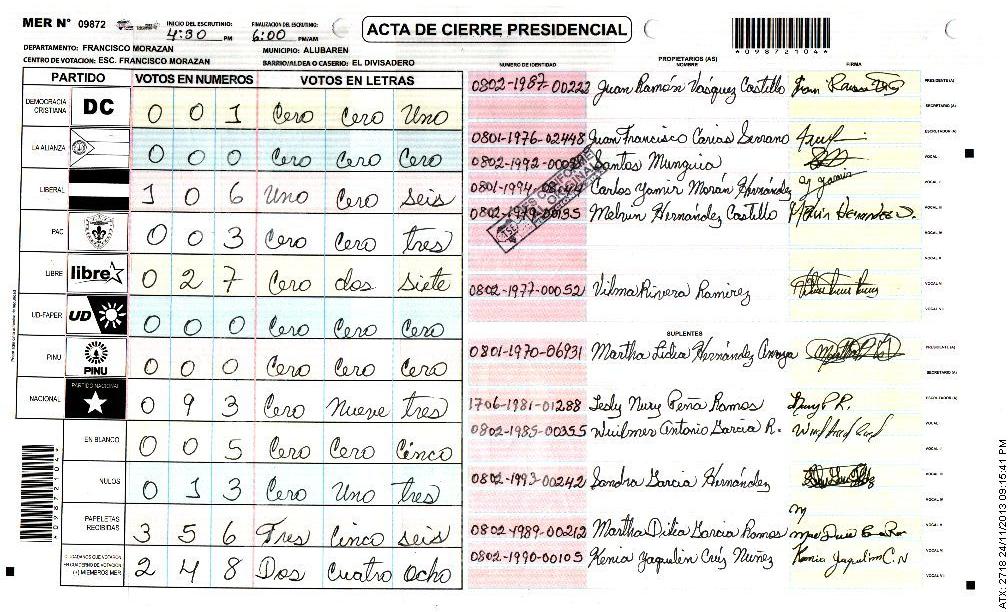 MER N° 09872
INICIO DEL ESCRUTINIO: 4:30 PM
FINALIZACION DEL ESCRUTINIO: 6:00 PM/AM
ACTA DE CIERRE PRESIDENCIAL
*09872104*
DEPARTAMENTO: FRANCISCO MORAZAN
MUNICIPIO: ALUBAREN
CENTRO DE VOTACION: ESC. FRANCISCO MORAZAN
BARRIO/ALDEA O CASERIO: EL DIVISADERO
PARTIDO VOTOS EN NUMEROS VOTOS EN LETRAS
DEMOCRACIA CRISTIANA DC 0 0 1 Cero Cero Uno
LA ALIANZA 0 0 0 Cero Cero Cero
LIBERAL 1 0 6 Uno Cero Seis
PAC 0 0 3 Cero Cero tres
LIBRE libre 0 2 7 Cero dos Siete
UD-FAPER UD 0 0 0 Cero Cero Cero
PINU PINU 0 0 0 Cero Cero Cero
NACIONAL PARTIDO NACIONAL 0 9 3 Cero Nueve tres
EN BLANCO 0 0 5 Cero Cero Cinco
NULOS 0 1 3 Cero Uno tres
PAPELETAS RECIBIDAS 3 5 6 Tres Cinco seis
CIUDADANOS QUE VOTARON EN CUADERNO DE VOTACION (+) MIEMBROS MER 2 4 8 Dos Cuatro Ocho
*09872104*
NUMERO DE IDENTIDAD
PROPIETARIOS (AS)
NOMBRE
FIRMA
0802-1987-00222 Juan Ramón Vásquez Castillo PRESIDENTE(A)
SECRETARIO (A)
0801-1976-02448 Juan Francisco Carias Serrano ESCRUTADOR (A)
0802-1992- Santos Munguia VOCAL I
0801-1994- Carlos Yamir Morán Hernández VOCAL II
0802-1979-00135 Melvin Hernández Castillo VOCAL III
VOCAL IV
VOCAL V
0802-1977-00052 Vilma Rivera Ramirez VOCAL VI
VOCAL VII
SUPLENTES
0801-1970-06931 Martha Lidia Hernández Amaya PRESIDENTE (A)
SECRETARIO (A)
1706-1981-01288 Lesly Nury Peña Ramos ESCRUTADOR (A)
0802-1985-00355 Wuilmer Antonio Garcia R. VOCAL I
VOCAL II
0802-1993-00242 Sandra Garcia Hernández VOCAL III
VOCAL IV
0802-1989-00212 Martha Dilia Garcia Ramos VOCAL V
0802-1990-00105 Kenia Jaquelin Cruz Nuñez Kenia Jaquelin C.N VOCAL VI
VOCAL VII
ES CONFORME AL ORIGINAL
TSE
ATX: 2718 24/11/2013 09:15:41 PM